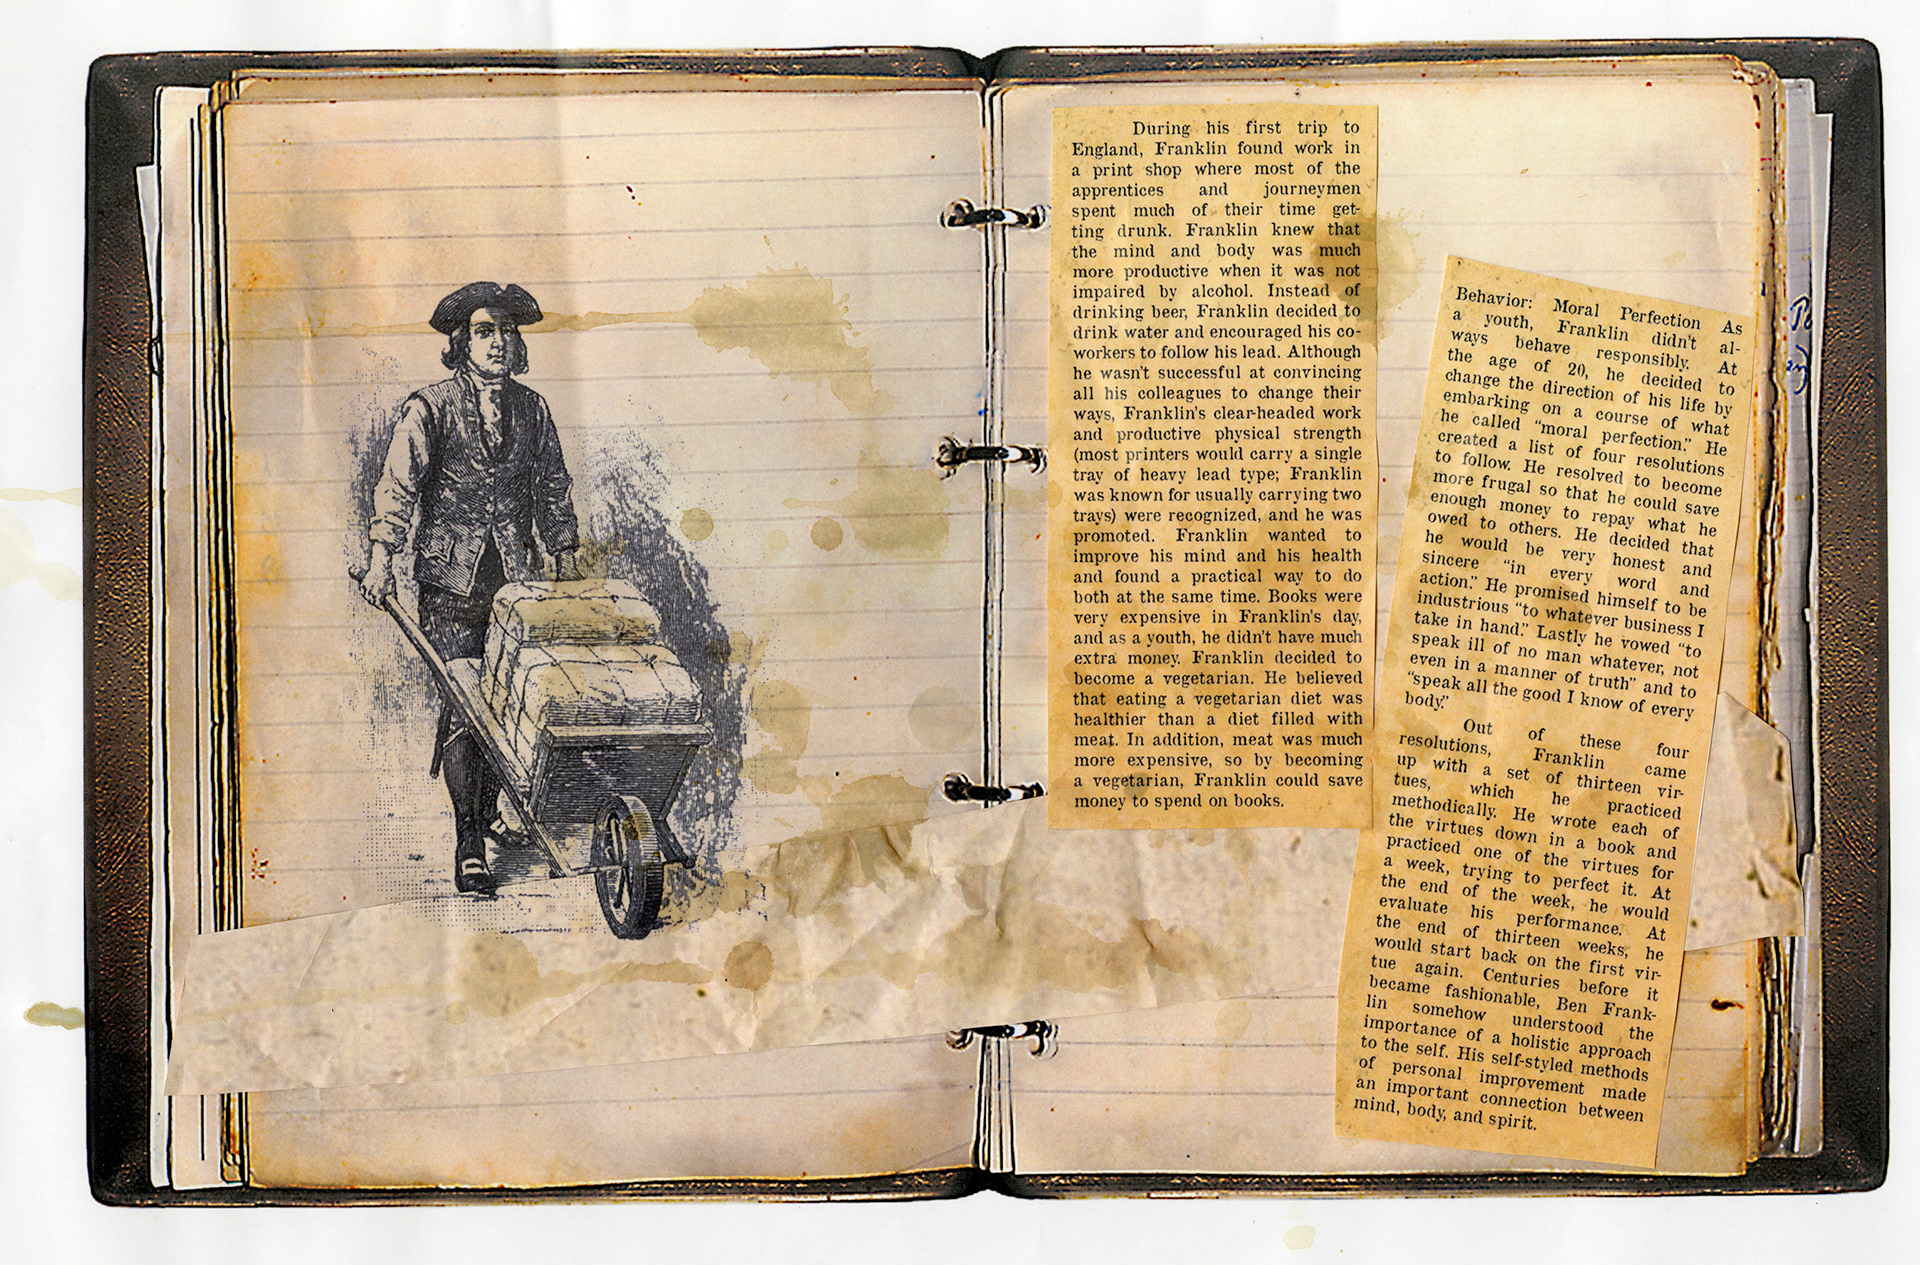 During his first trip to
England, Franklin found work in
a print shop where most of the
apprentices and journeymen
spent much of their time get-
ting drunk. Franklin knew that
the mind and body was much
more productive when it was not
impaired by alcohol. Instead of
drinking beer, Franklin decided to
drink water and encouraged his co-
workers to follow his lead. Although
he wasn't successful at convincing
all his colleagues to change their
ways, Franklin's clear-headed work
and productive physical strength
(most printers would carry a single
tray of heavy lead type; Franklin
was known for usually carrying two
trays) were recognized, and he was
promoted. Franklin wanted to
improve his mind and his health
and found a practical way to do
both at the same time. Books were
very expensive in Franklin's day,
and as a youth, he didn't have much
extra money. Franklin decided to
become a vegetarian. He believed
that eating a vegetarian diet was
healthier than a diet filled with
meat. In addition, meat was much
more expensive, so by becoming
a vegetarian, Franklin could save
money to spend on books.
Behavior: Moral Perfection As
a youth, Franklin didn't al-
ways behave responsibly. At
the age of 20, he decided to
change the direction of his life by
embarking on a course of what
he called "moral perfection." He
created a list of four resolutions
to follow. He resolved to become
more frugal so that he could save
enough money to repay what he
owed to others. He decided that
he would be very honest and
sincere "in every word and
action." He promised himself to be
industrious "to whatever business I
take in hand." Lastly he vowed "to
speak ill of no man whatever, not
even in a manner of truth" and to
"speak all the good I know of every
body."
Out of these four
resolutions, Franklin came
up with a set of thirteen vir-
tues, which he practiced
methodically. He wrote each of
the virtues down in a book and
practiced one of the virtues for
a week, trying to perfect it. At
the end of the week, he would
evaluate his performance. At
the end of thirteen weeks, he
would start back on the first vir-
tue again. Centuries before it
became fashionable, Ben Frank-
lin somehow understood the
importance of a holistic approach
to the self. His self-styled methods
of personal improvement made
an important connection between
mind, body, and spirit.